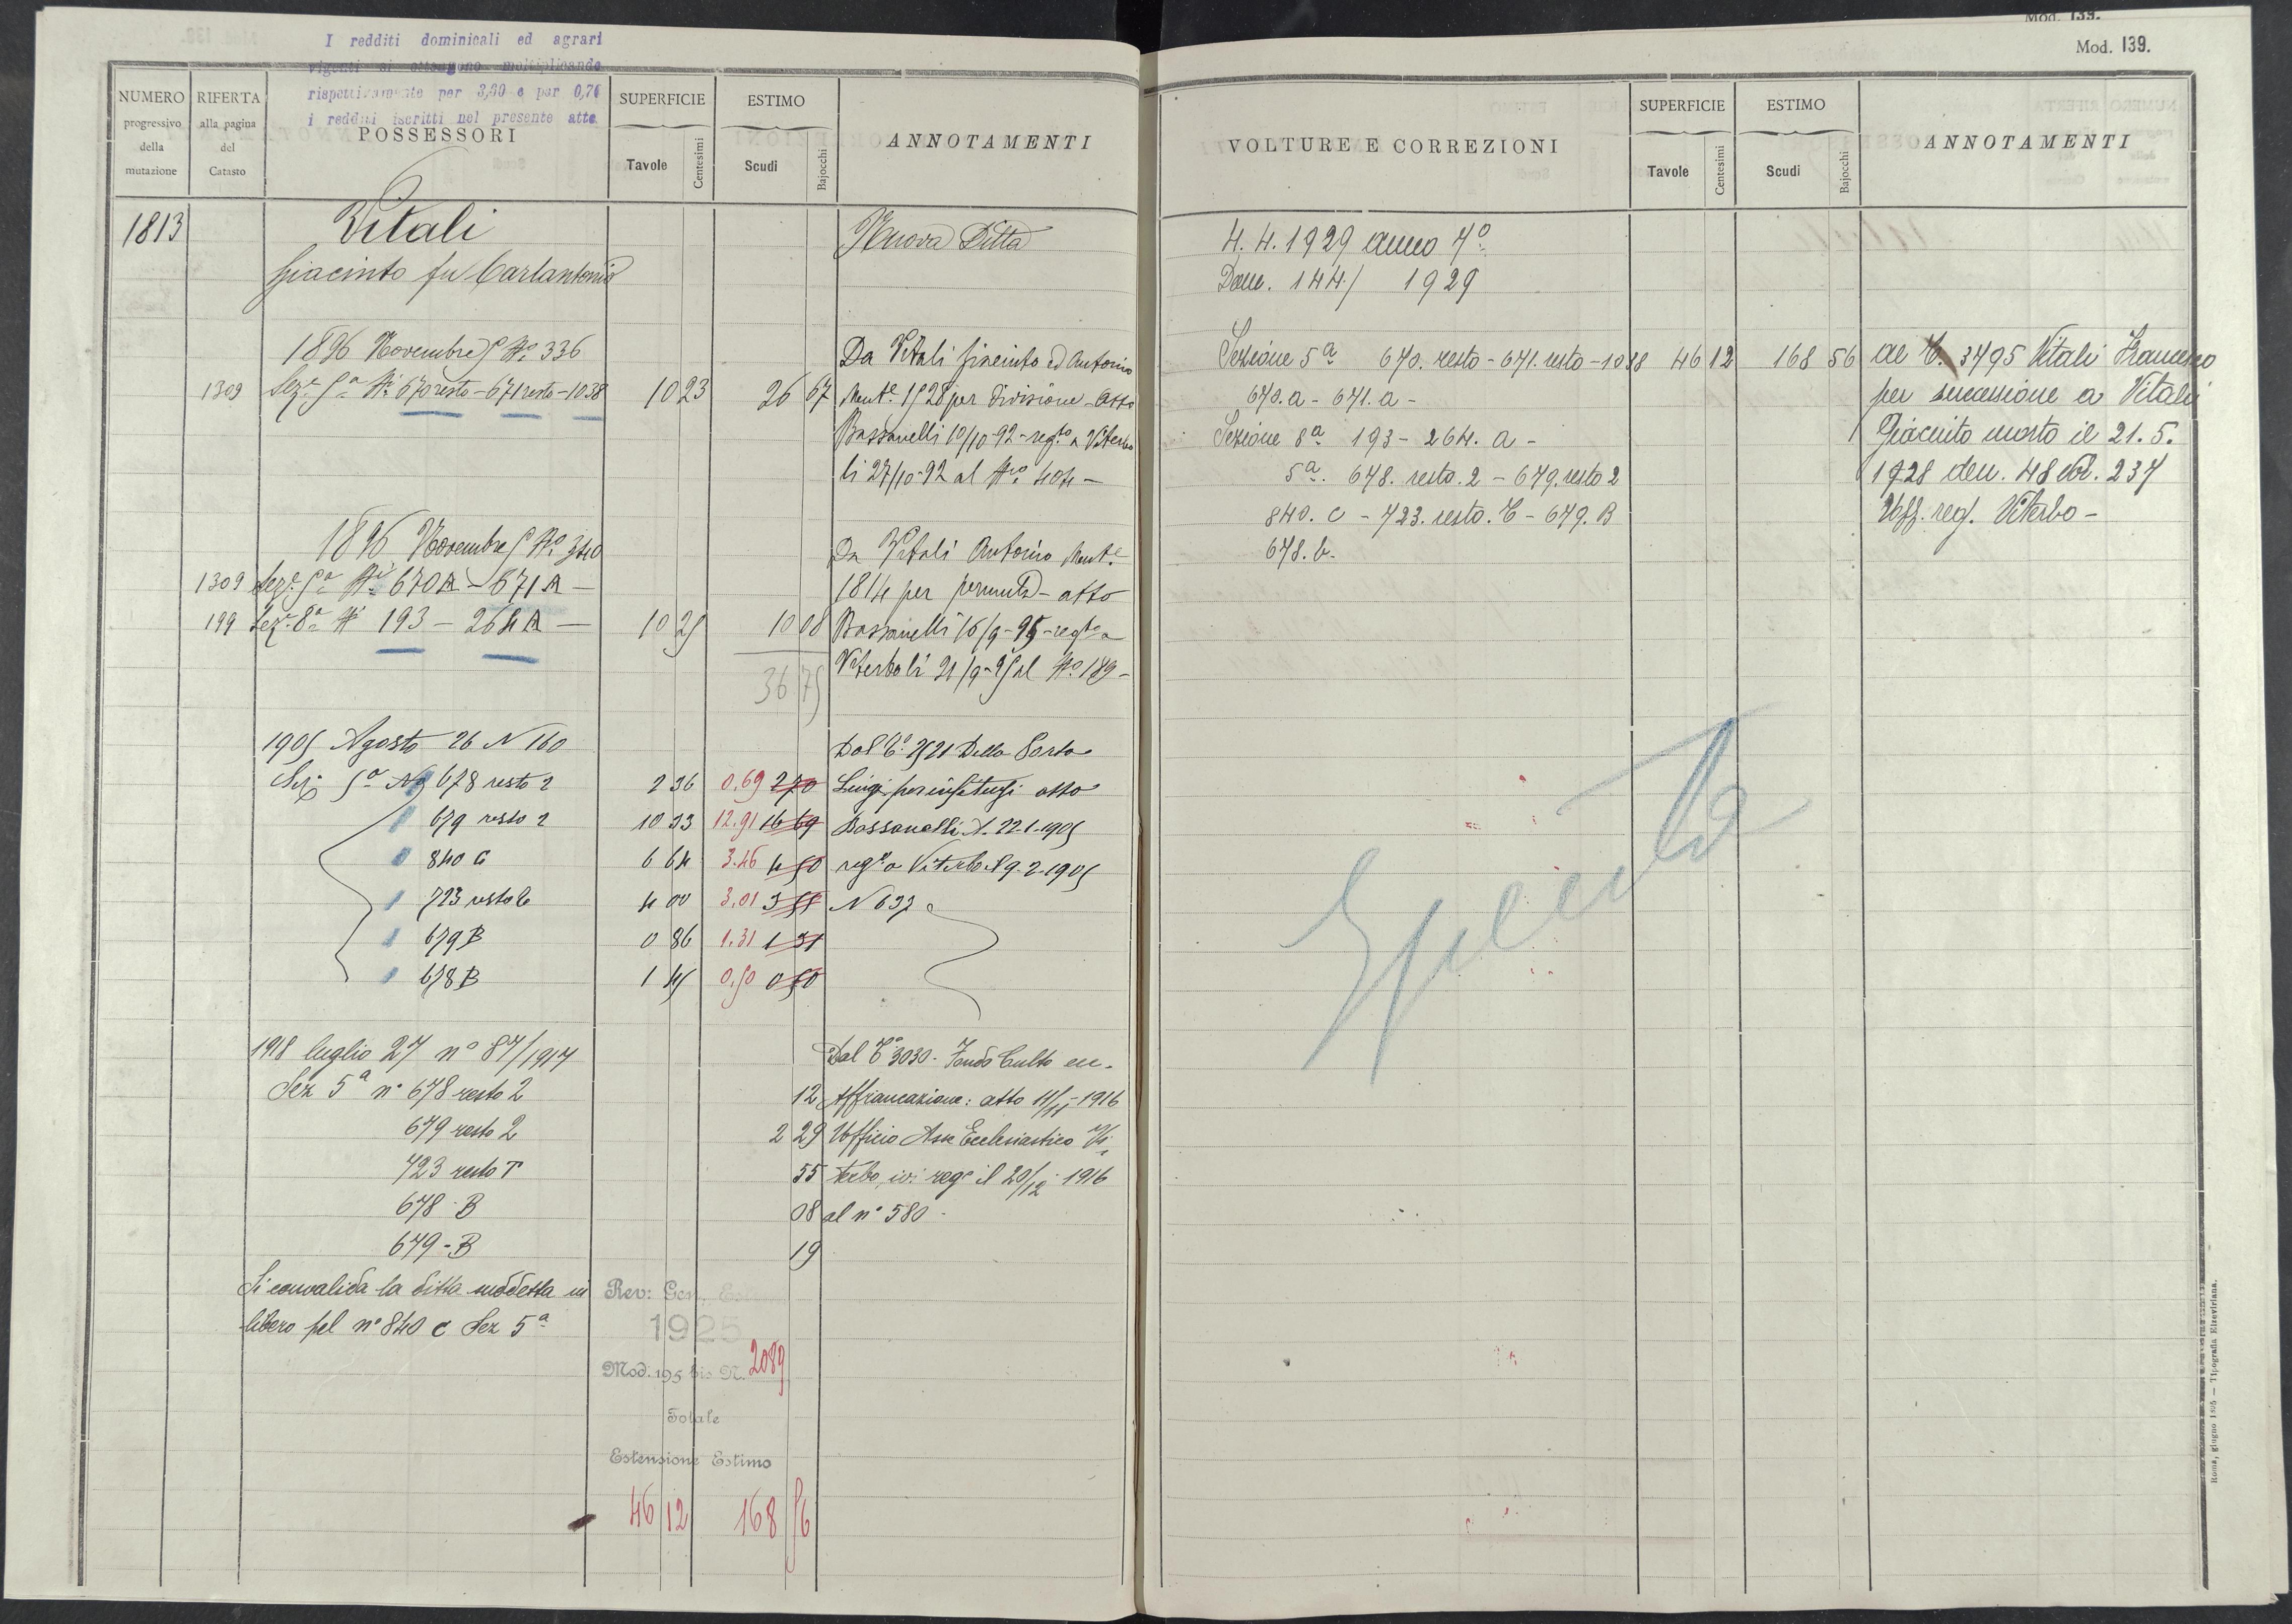 I redditi dominicali ed agrari
vigenti si ottengono moltiplicando
rispettivamente per 3,30 e per 0,76
i redditi iscritti nel presente atto
NUMERO progressivo della mutazione
RIFERTA alla pagina del Catasto
POSSESSORI
SUPERFICIE
Tavole Centesimi
ESTIMO
Scudi Bajocchi
ANNOTAMENTI
1813 Vitali Nuova Ditta
Giacinto fu Carlantonio
1896 Novembre 5 No. 336 Da Vitali Giacinto ed Antonio
1309 Seze. 5a Ni. 670 resto - 671 resto - 1038 10 23 26 67 Mente. 1528 per divisione - Atto
Bassanelli 10/10-92 - regto a Viterbo
li 27/10-92 al Nro 404 -
1896 Novembre 5 No. 340 Da Vitali Antonio Mente.
1309 Seze. 5a Ni. 670 A - 671 A - 1814 per permuta - atto
199 Seze. 8a Ni 193 - 264 A - 10 25 10 08 Bassanelli 16/9-95 - regto a
36 75 Viterbo li 21/9-95 al No. 189 -
1905 Agosto 26 N 160 Dal Co. 2521 Della Porta
Sez 5a N 678 resto 2 2 36 0.69 2 70 Luigi per enfiteusi atto
679 resto 2 10 33 12.91 16 69 Bassanelli A. 22-1-1905
840 C 6 64 3.46 4 50 rego a Viterbo il 9-2-1905
723 resto C 4 00 3.01 3 51 N 637
679 B 0 86 1.31 1 31
678 B 1 45 0.50 0 50
1918 luglio 27 no 87/1917 Dal Co 3030 - Fondo Culto ecc.
Sez 5a no 678 resto 2 12 Affrancazione: atto 11/11-1916
679 resto 2 2 29 Ufficio Asse Ecclesiastico Vi-
723 resto T 55 terbo, ivi rege il 20/12-1916
678 - B 08 al no 580 -
679 - B 19
Si convalida la ditta suddetta in
libero pel no 840 c Sez 5a
Rev: Gen.
1925
Mod. 195 bis N. 2089
Totale
Estensione Estimo
46 12 168 56
Mod. 139.
Mod. 139.
VOLTURE E CORREZIONI
SUPERFICIE
Tavole Centesimi
ESTIMO
Scudi Bajocchi
ANNOTAMENTI
4. 4. 1929 anno 7o
Dom. 144/ 1929
Sezione 5a 670. resto - 671. resto - 1038 46 12 168 56 al C. 3495 Vitali Francesco
670. a - 671. a - per successione a Vitali
Sezione 8a 193 - 264. a - Giacinto morto il 21. 5.
5a. 678. resto. 2 - 679. resto 2 1928 den. 48 vol. 237
840. c - 723. resto. C - 679. B Uff. reg. Viterbo -
678. b.
Spenta
Roma, giugno 1895 — Tipografia Elzeviriana.